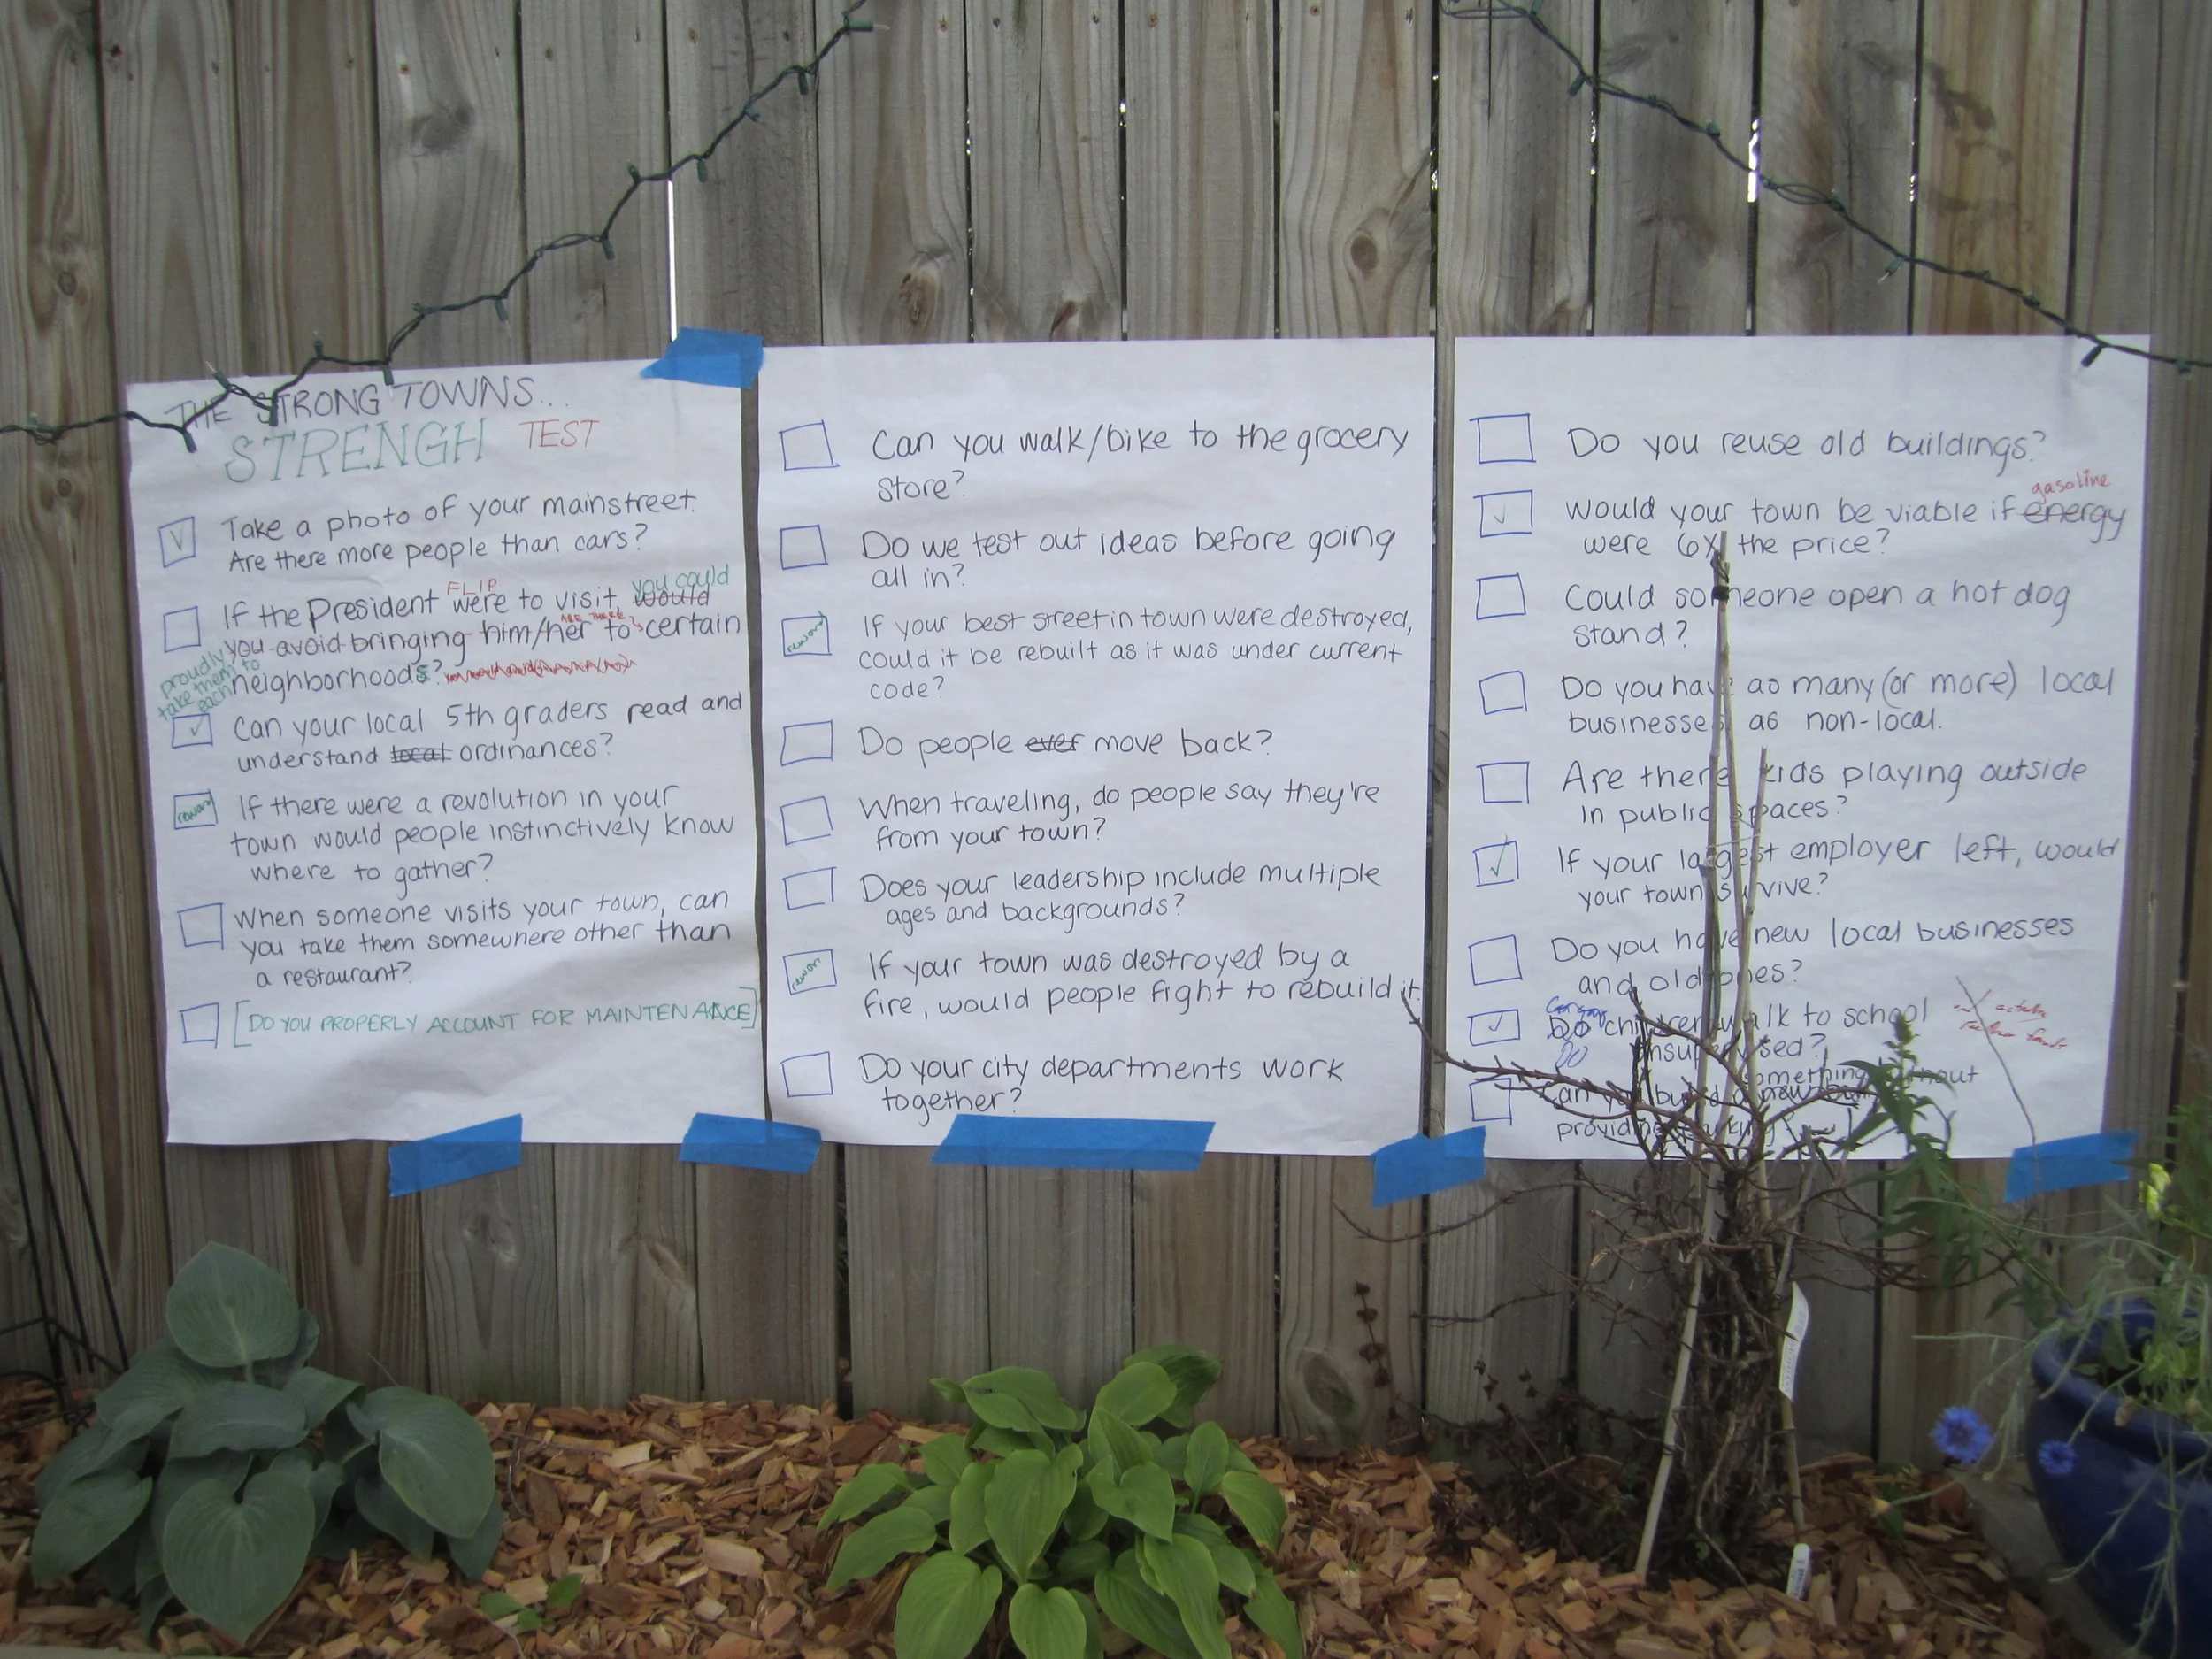 THE STRONG TOWNS...
STRENGH TEST
Take a photo of your mainstreet.
Are there more people than cars?
FLIP
you could
If the President were to visit, would
ARE THERE
you avoid bringing him/her to certain
proudly
take them to
each
neighborhoods?
Can your local 5th graders read and
understand local ordinances?
reword
If there were a revolution in your
town would people instinctively know
where to gather?
When someone visits your town, can
you take them somewhere other than
a restaurant?
[DO YOU PROPERLY ACCOUNT FOR MAINTENANCE]
Can you walk/bike to the grocery
store?
Do we test out ideas before going
all in?
reword
If your best street in town were destroyed,
could it be rebuilt as it was under current
code?
Do people ever move back?
When traveling, do people say they're
from your town?
Does your leadership include multiple
ages and backgrounds?
rewor
If your town was destroyed by a
fire, would people fight to rebuild it.
Do your city departments work
together?
Do you reuse old buildings?
gasoline
Would your town be viable if energy
were 6X the price?
Could someone open a hot dog
stand?
Do you have as many (or more) local
businesses as non-local.
Are there kids playing outside
in public spaces?
If your largest employer left, would
your town survive?
Do you have new local businesses
and old ones?
Do children walk to school
DO unsupervised?
something without
Can you build a new
providing parking